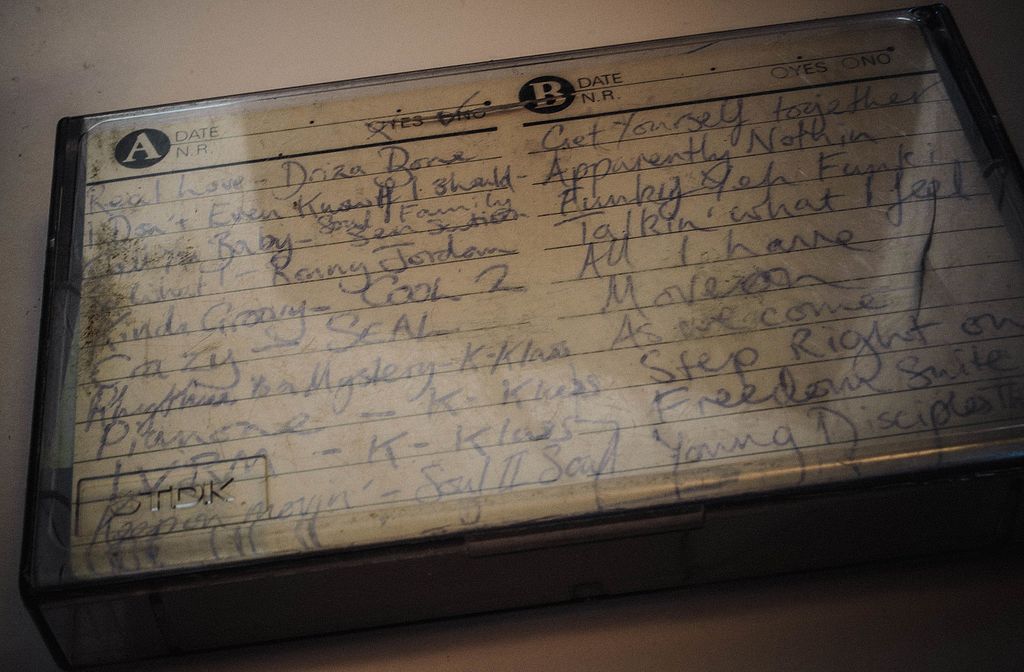 A DATE N.R. YES NO
Real Love - Driza Bone
I Don't Even Know If I Should -
Baby - Soul Family Sensation
What? - Ronny Jordan
Kinda Groovy - COOL 2
Crazy - SEAL
Rhythm is a Mystery - K-Klass
- K-Klass
- K-Klass
Keep on movin' - Soul II Soul
TDK
B DATE N.R. YES NO
Get Yourself together
Apparently Nothin
Funky Yeh Funki
Talkin' what I feel
All I have
Move on
As we come
Step Right on
Freedom Suite
Young Disciples